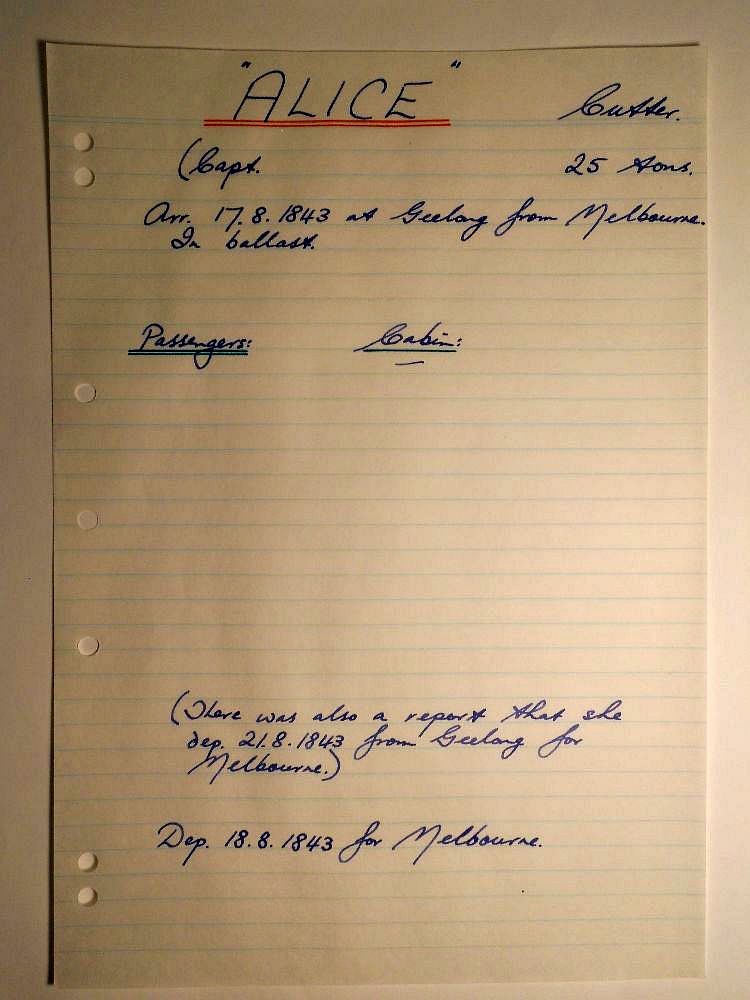 "ALICE" Cutter.
(Capt. 25 tons.
Arr. 17.8.1843 at Geelong from Melbourne.
In ballast.
Passengers: Cabin:
(There was also a report that she
dep. 21.8.1843 from Geelong for
Melbourne.)
Dep. 18.8.1843 for Melbourne.